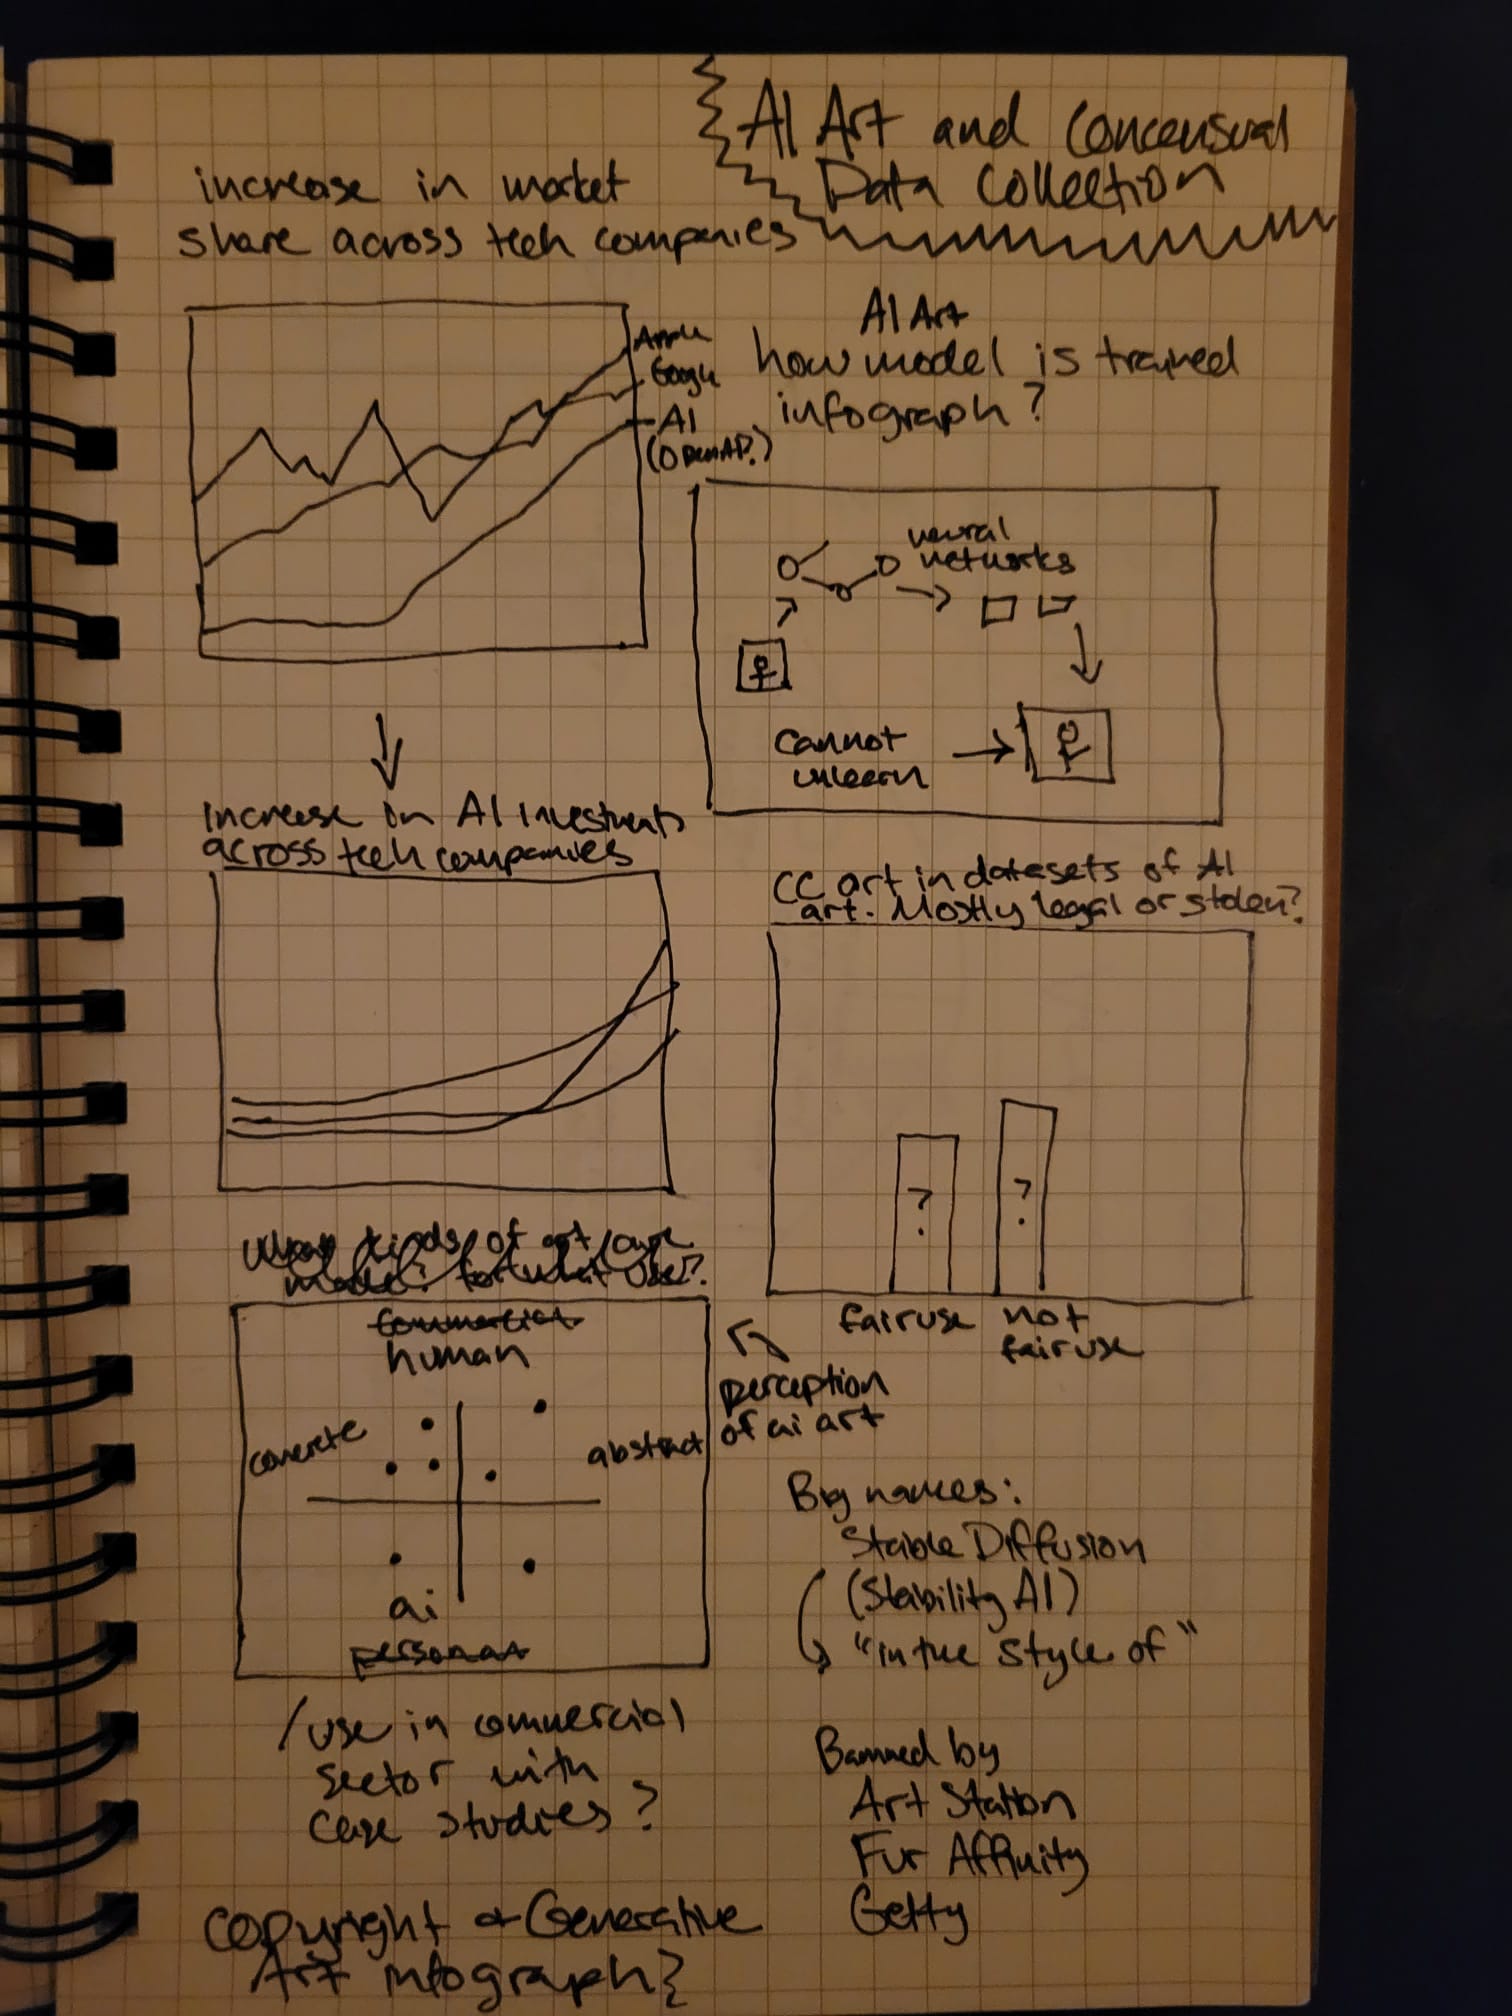 AI Art and Concensual
Data Collection
increase in market
share across tech companies
Apple
Google
AI
(OpenAI?)
AI Art
how model is trained
infograph?
neural
networks
cannot
unlearn
Increase in AI Investments
across tech companies
CC art in datasets of AI
art. Mostly legal or stolen?
?
?
fairuse not
fairuse
kinds of art are
made? for what use?
commercial
human
concrete
abstract
ai
personal
perception
of ai art
Big names:
Stable Diffusion
(Stability AI)
"in the style of"
/use in commercial
sector with
case studies?
Banned by
Art Station
Fur Affinity
Getty
Copyright & Generative
Art infograph}